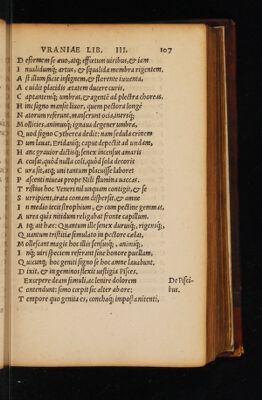 VRANIAE LIB. III. 107
D eformem se auo, atq; effœtum uiribus, & iam
I nualidumq; artus, & squalida membra rigentem.
A st illum facie insignem, & florente iuuenta,
A ccidit placidis ætatem ducere curis,
C aptantemq; umbras, & agentē ad plectra choreas.
H inc signo mansit liuor, quem pectora longè
N atorum referunt, manserunt ocia, mersq;
M ollicies, animiq; ignaua degener umbra.
Q uod signo Cytherea dedit: nam sedula crinem
D um lauat, Eridaniq; caput depectit ad undam,
H anc grauior dictisq; senex incensus amaris
A ccusat, quòd nulla coli, quòd sola decoris
C ura sit, atq; uni tantum placuisse labori
P ascenti niueas prope Nili flumina uaccas.
T ristius hoc Veneri nil unquam contigit, & se
S urripiens, irata comam dispersit, & amne
I n medio iecit strophium, & cum pectine gemmas,
A urea quîs nitidum religabat fronte capillum.
A tq; ait hæc: Quantum ille senex durusq;, rigensq;,
Q uantum tristitiæ simulato in pectore cælat,
M ollescant magis hoc illis sensusq;, animiq;,
I nq; uiri speciem referant sine honore puellam,
Q uicunq; hoc geniti signo se hoc amne lauabunt.
D ixit, & in geminos flexit uestigia Pisces.
Excepere deam simuli, ac lenire dolorem De Pisci-
C ontendunt: simo cœpit sic alter ab ore: bus.
T empore quo genita es, conchaq; imposta nitenti,